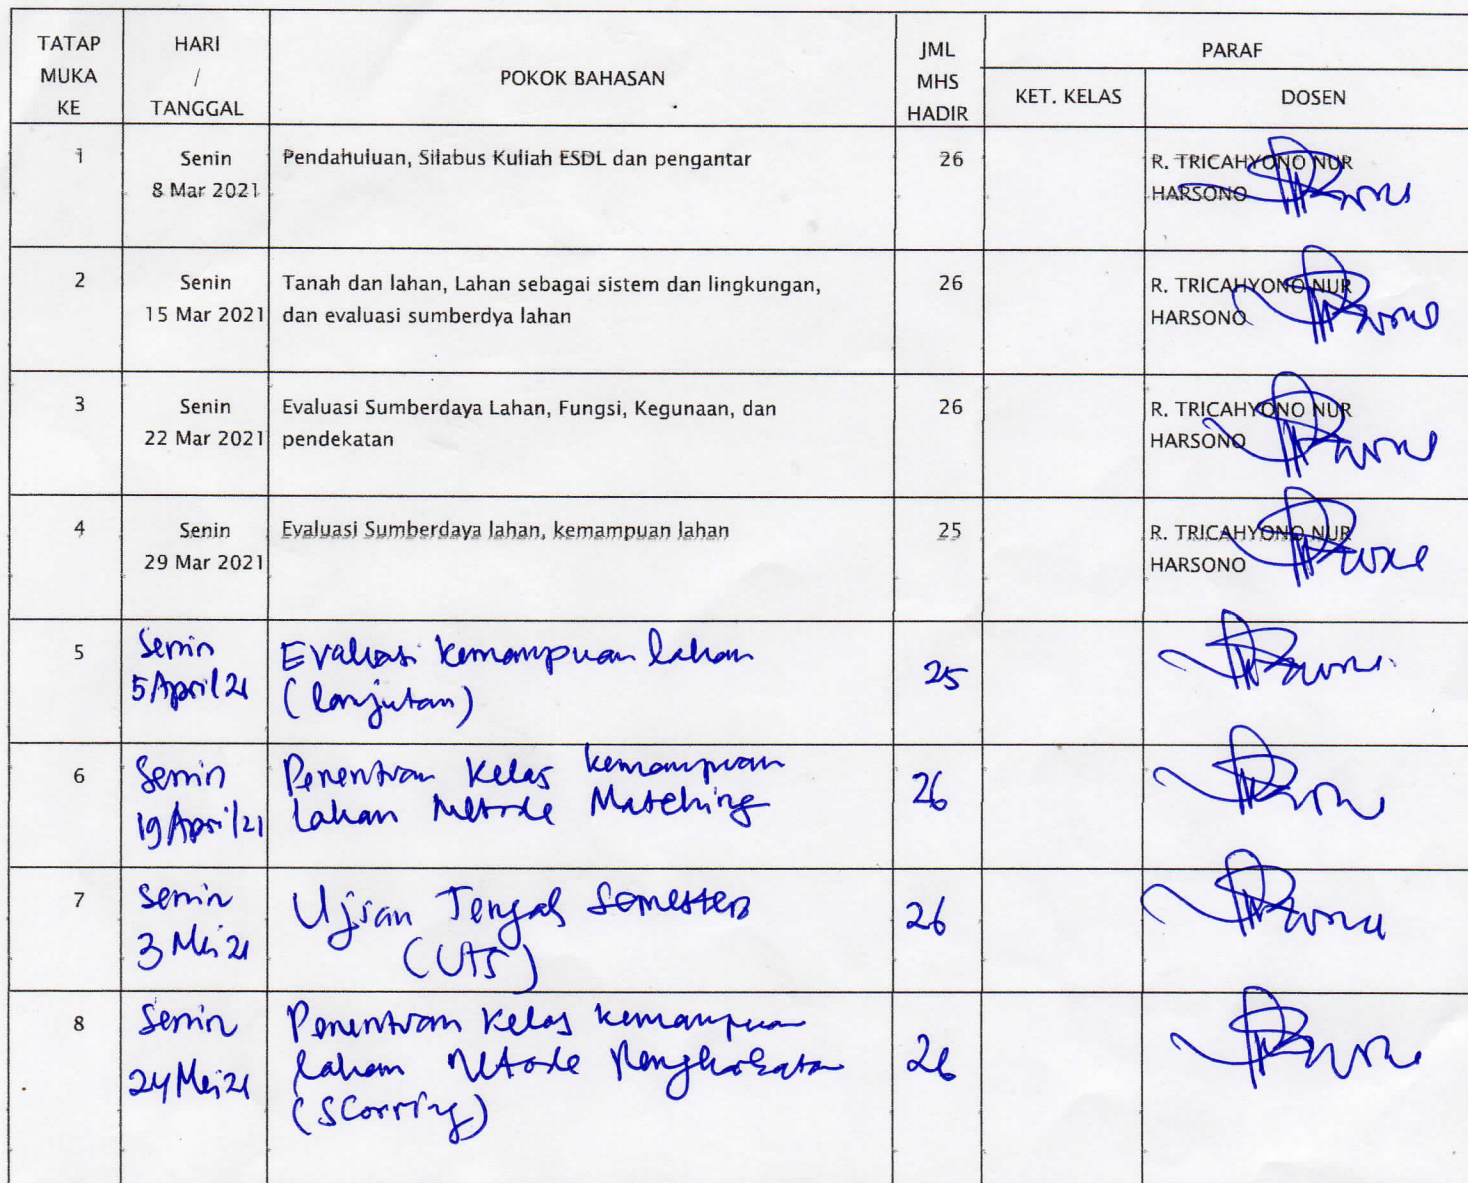 TATAP
MUKA
KE
HARI
/
TANGGAL
POKOK BAHASAN
JML
MHS
HADIR
PARAF
KET. KELAS
DOSEN
1
Senin
8 Mar 2021
Pendahuluan, Silabus Kuliah ESDL dan pengantar
26
R. TRICAHYONO NUR
HARSONO
2
Senin
15 Mar 2021
Tanah dan lahan, Lahan sebagai sistem dan lingkungan,
dan evaluasi sumberdya lahan
26
R. TRICAHYONO NUR
HARSONO
3
Senin
22 Mar 2021
Evaluasi Sumberdaya Lahan, Fungsi, Kegunaan, dan
pendekatan
26
R. TRICAHYONO NUR
HARSONO
4
Senin
29 Mar 2021
Evaluasi Sumberdaya lahan, kemampuan lahan
25
R. TRICAHYONO NUR
HARSONO
5
Senin
5 April 21
Evaluasi kemampuan lahan
(lanjutan)
25
6
Senin
19 April 21
Penentuan Kelas kemampuan
lahan Metode Matching
26
7
Senin
3 Mei 21
Ujian Tengah Semester
(UTS)
26
8
Senin
24 Mei 21
Penentuan Kelas kemampuan
lahan Metode Pengharkatan
(SCorring)
26